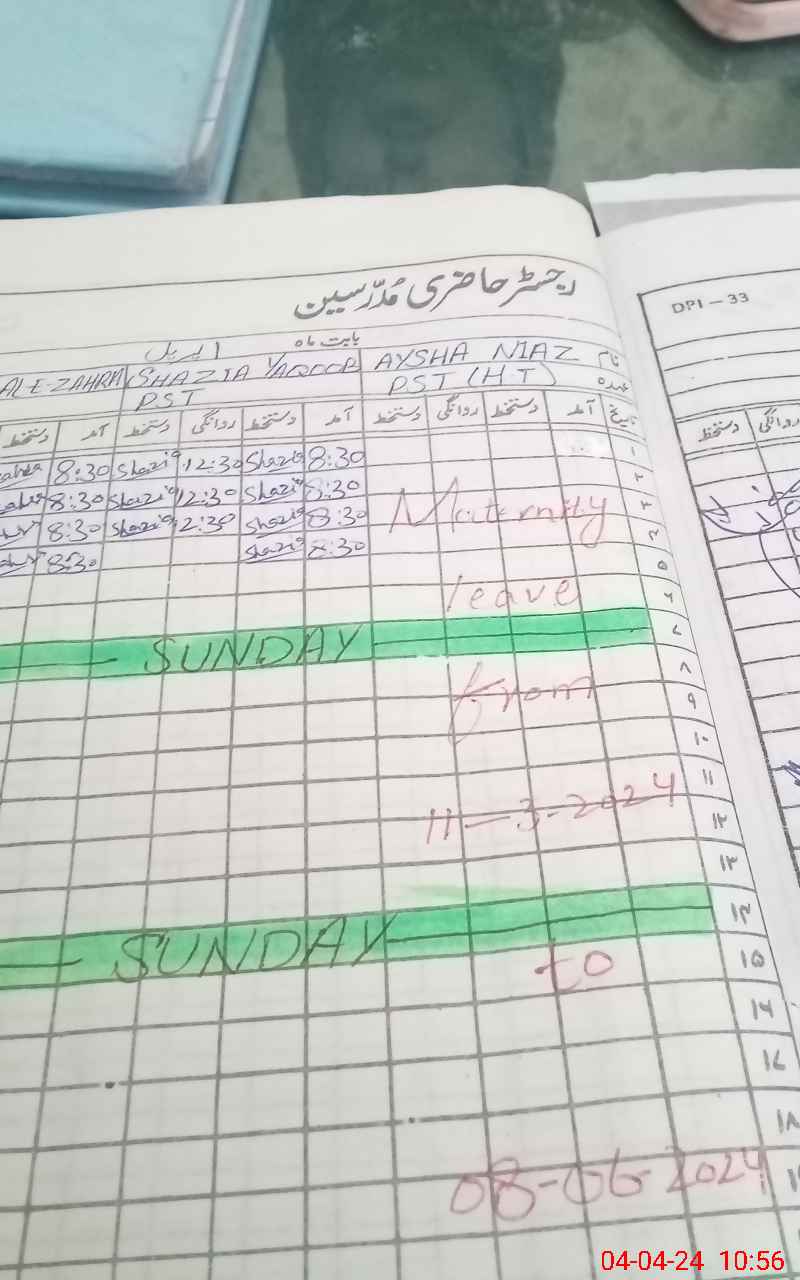 رجسٹر حاضری مُدرّسین
DPI - 33
بابت ماہ اپریل
نام AYSHA NIAZ SHAZIA YAQOOB ALE-ZAHRA
عہدہ PST (H.T) PST
تاریخ آمد دستخط روانگی دستخط آمد دستخط روانگی دستخط آمد دستخط
روانگی دستخط
۱ 8:30 Shazia 12:30 Shazia 8:30
۲ 8:30 Shazia 12:30 Shazia 8:30
۳ Maternity 8:30 Shazia 12:30 Shazia 8:30
۴ 8:30 Shazia 8:30
۵
۶ leave
۷ SUNDAY
۸
۹ from
۱۰
۱۱ 11-3-2024
۱۲
۱۳
۱۴ SUNDAY
۱۵ to
۱۶
۱۷
۱۸
08-06-2024
04-04-24 10:56